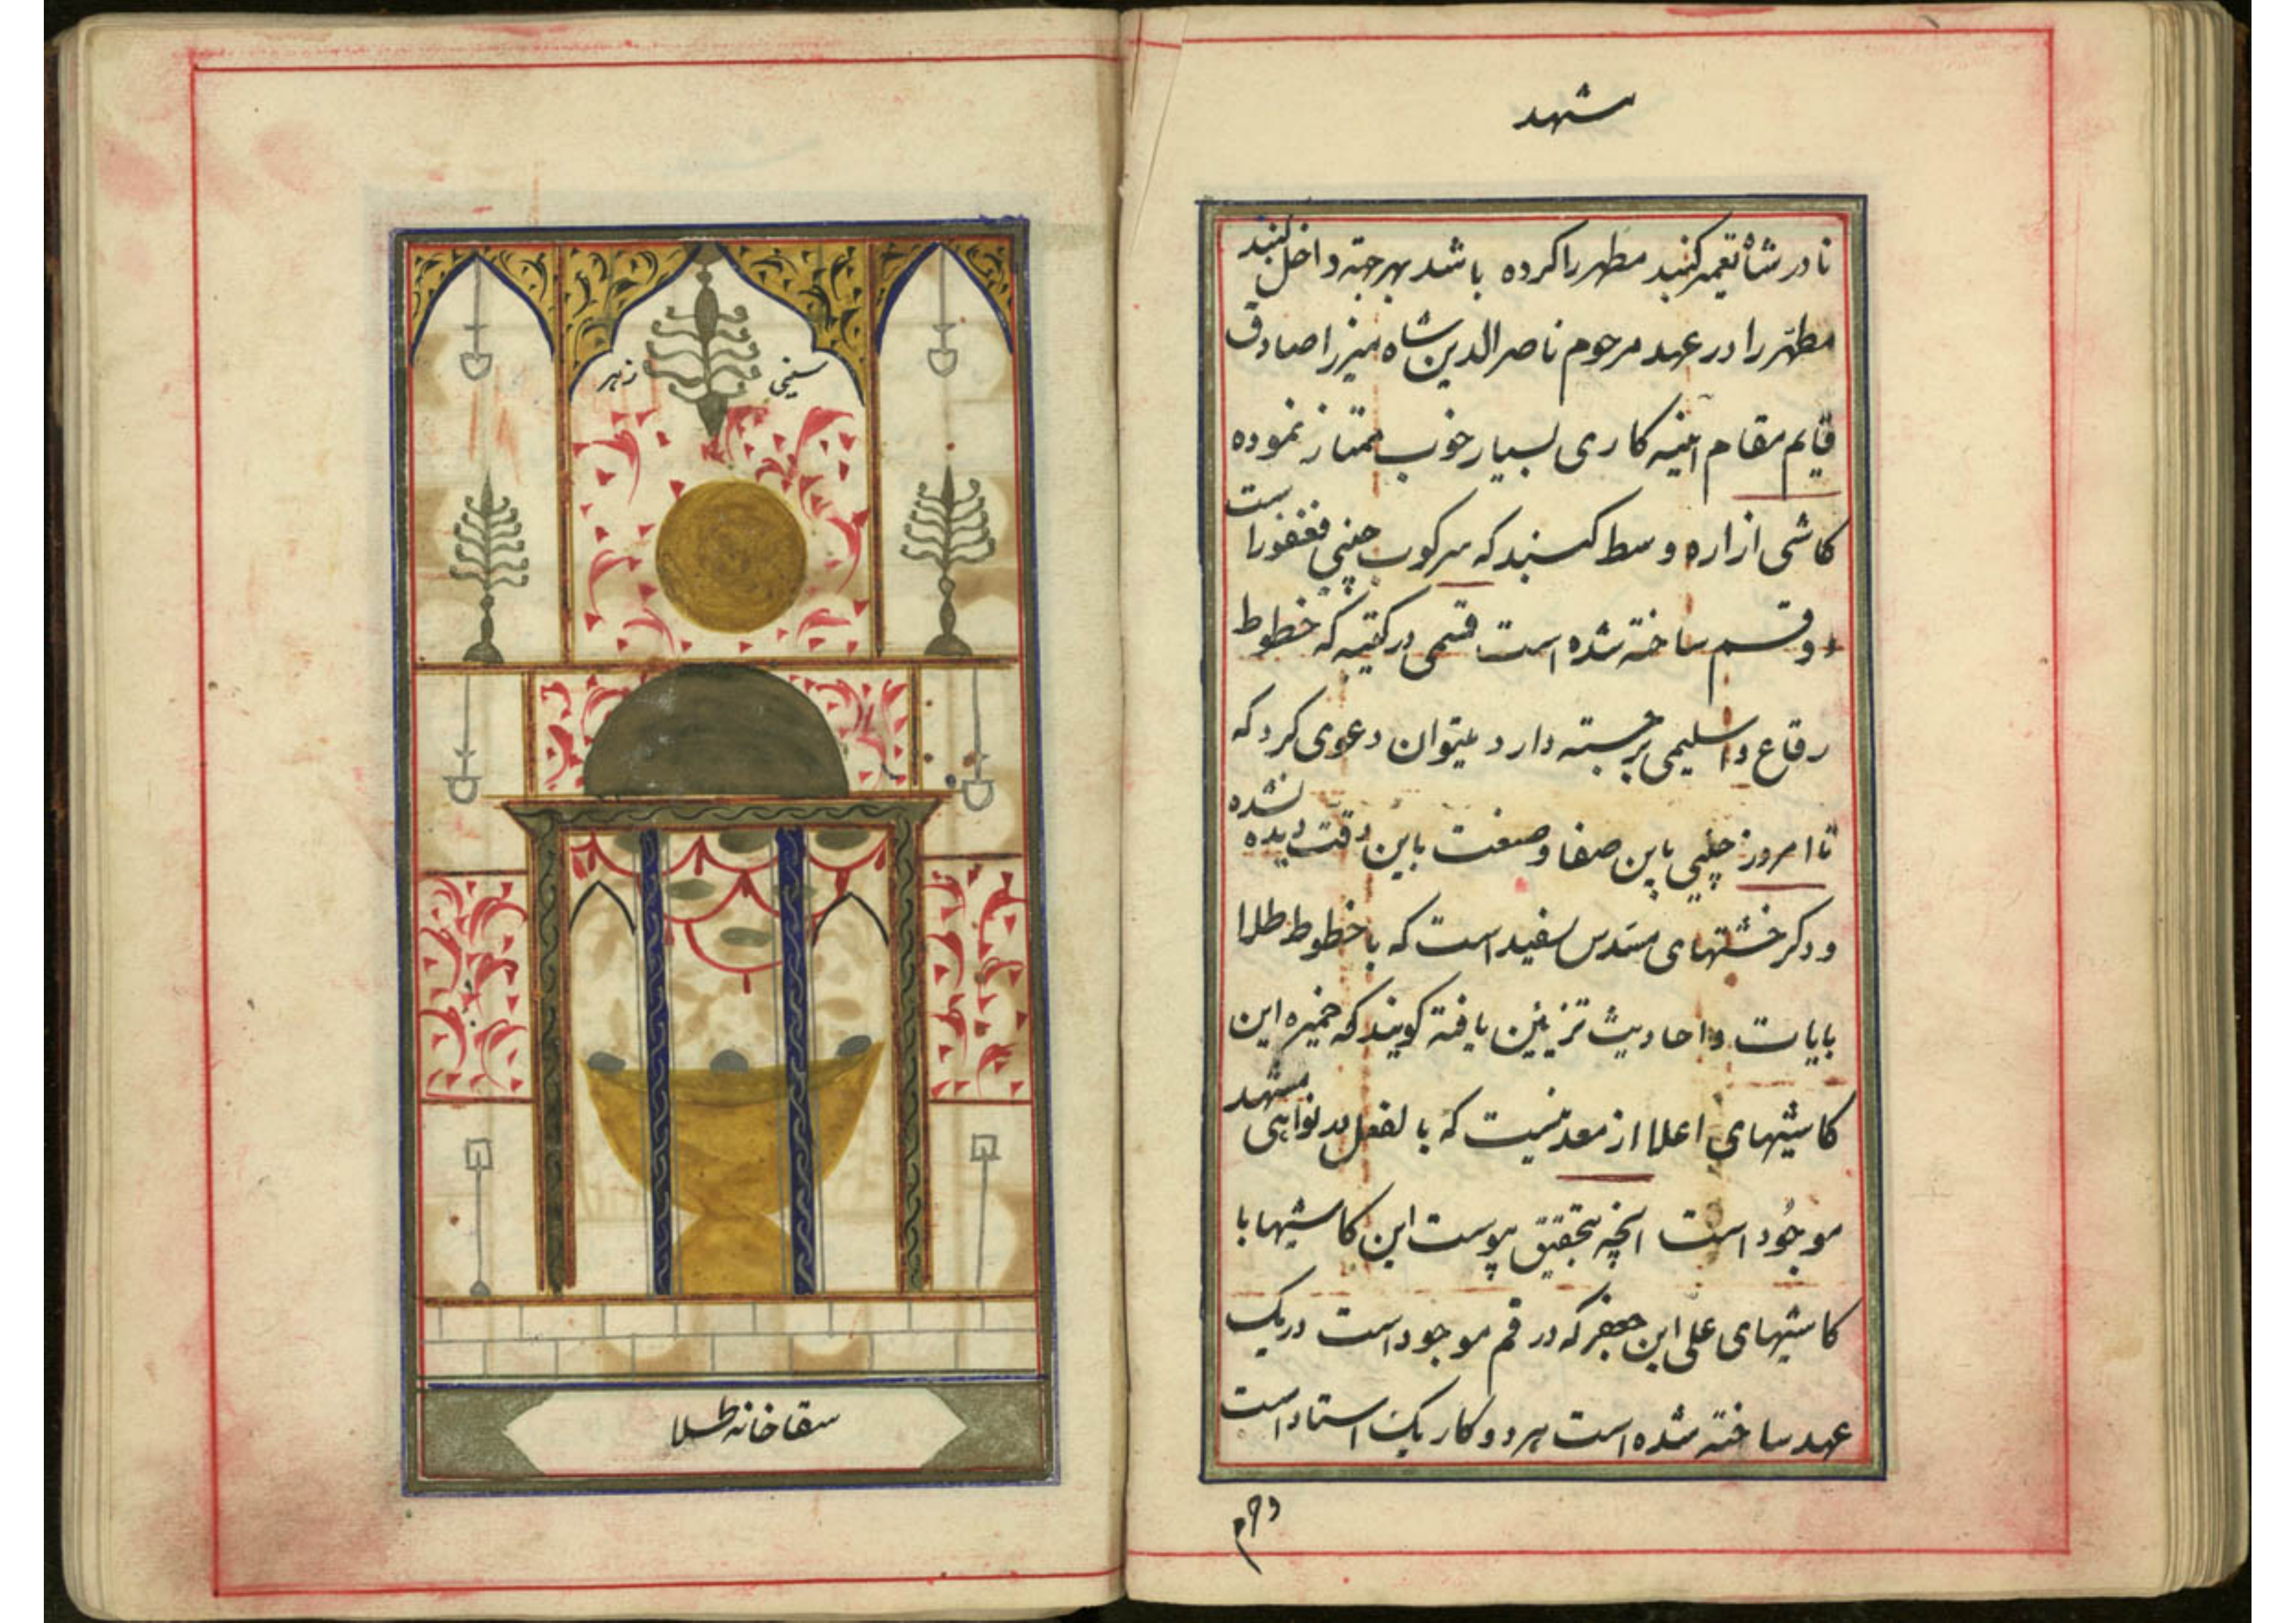 مشهد
نادر شاه تعمیر کنبد مطهر را کرده باشد بهر جهة داخل کنبد
مطهّر را در عهد مرحوم ناصرالدین شاه میرزا صادق
قایم مقام آینه کاری بسیار خوب ممتاز نموده
کاشی ازاره وسط کنبد که سرکوب چینی فغفور است
دو قسم ساخته شده است قسمی در کتیبه که خطوط
رقاع و اسلیمی برجسته دارد میتوان دعوی کرد که
تا امروز چینی باین صفا و صنعت باین دقت دیده نشده
و دکر خشتهای مسدس سفید است که با خطوط طلا
بایات و احادیث تزیین یافته کویند که خمیره این
کاشیهای اعلا از معدنیست که بالفعل در نواحی مشهد
موجُود است آنچه بتحقیق پیوست این کاشیها با
کاشیهای علی ابن جعفر که در قم موجود است در یک
عهد ساخته شده است هر دو کار یک استاد است
سینی
سقاخانه طلا